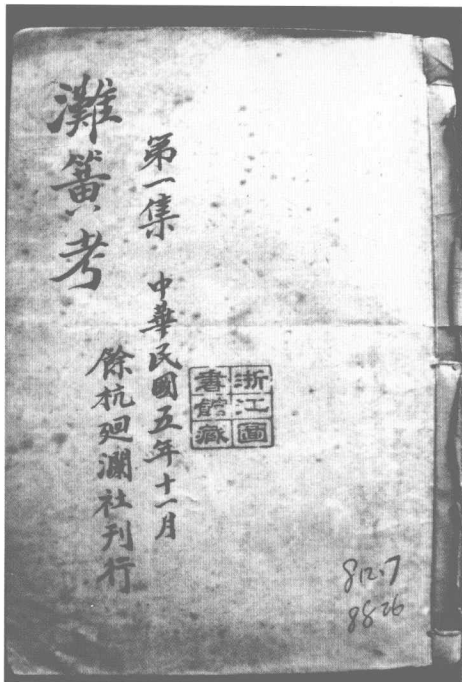 第一集 中華民國五年十一月
灘簧考
餘杭廻瀾社刊行
浙江圖書館藏
812.7
8826